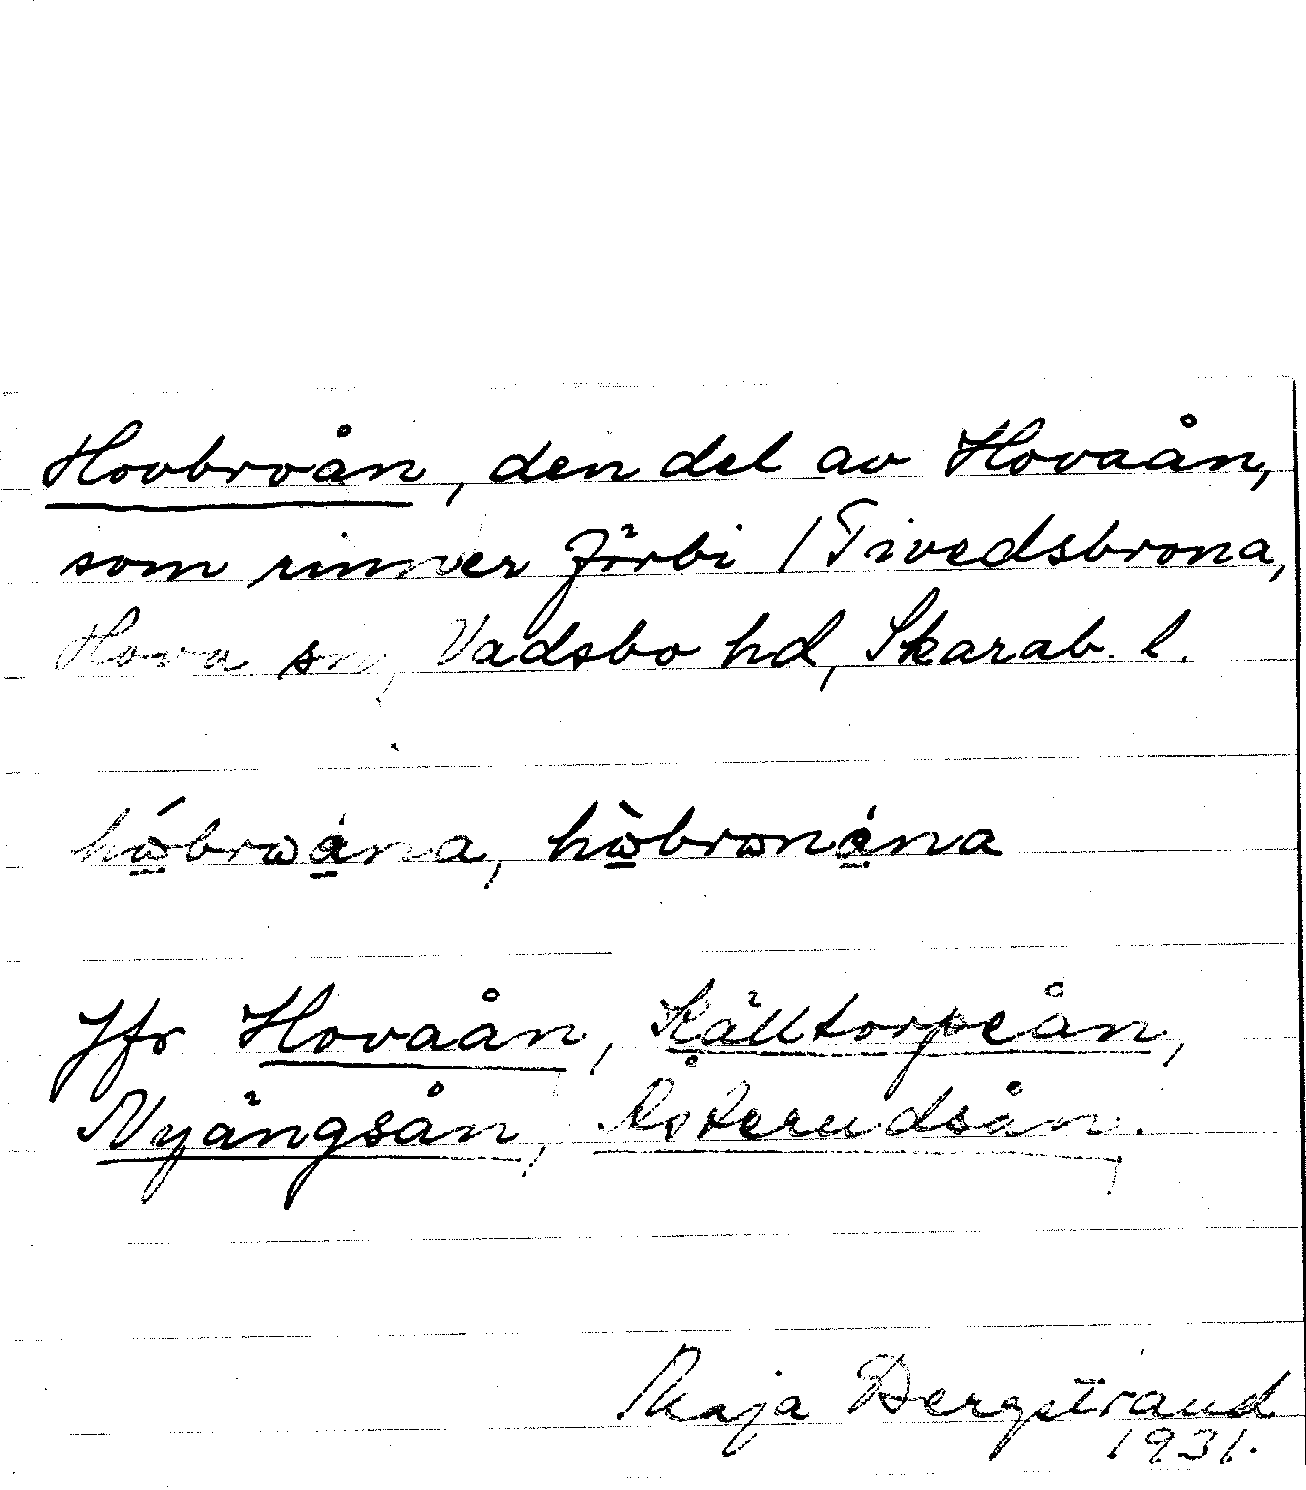 Hovbroån, den del av Hovaån,
som rinner förbi /Tivedsbrona,
Hova sn, Vadsbo hd, Skarab. l.
Jfr Hovaån, Källtorpeån,
Nyängsån,
Maja Bergstrand
1931.